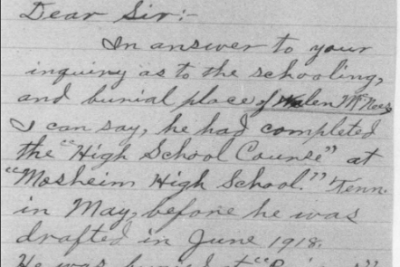 Dear Sir:-
In answer to your
inquiry as to the schooling,
and burial place of Walen McNees
I can say, he had completed
the "High School Course" at
"Mosheim High School." Tenn.
in May, before he was
drafted in June 1918.
He was buried at